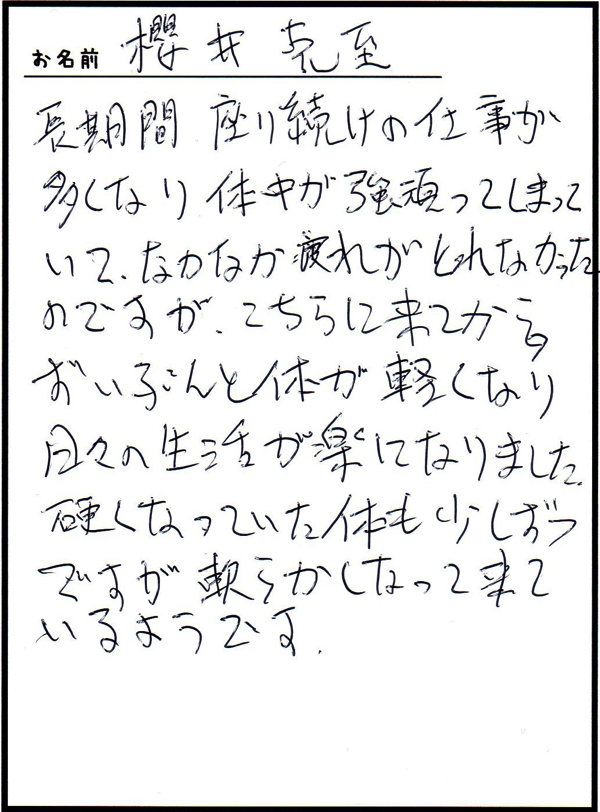 お名前 櫻井 克至
長期間 座り続けの仕事が
多くなり 体中が強頑ってしまって
いて、なかなか疲れがとれなかった
のですが、こちらに来てから
ずいぶんと体が軽くなり
日々の生活が楽になりました。
硬くなっていた体も少しずつ
ですが軟らかくなって来て
いるようです.